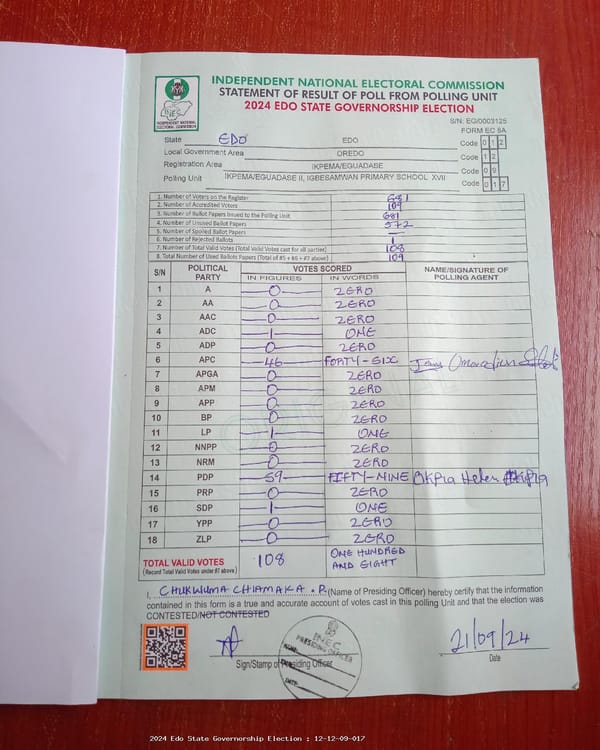 INDEPENDENT NATIONAL ELECTORAL COMMISSION
STATEMENT OF RESULT OF POLL FROM POLLING UNIT
2024 EDO STATE GOVERNORSHIP ELECTION
INEC
INDEPENDENT NATIONAL ELECTORAL COMMISSION
S/N: EG/0003125
FORM EC 8A
State EDO EDO Code 0 1 2
Local Government Area OREDO Code 1 2
Registration Area IKPEMA/EGUADASE Code 0 9
Polling Unit IKPEMA/EGUADASE II, IGBESAMWAN PRIMARY SCHOOL XVII Code 0 1 7
1. Number of Voters on the Register 681
2. Number of Accredited Voters 109
3. Number of Ballot Papers Issued to the Polling Unit 681
4. Number of Unused Ballot Papers 572
5. Number of Spoiled Ballot Papers —
6. Number of Rejected Ballots 1
7. Number of Total Valid Votes (Total Valid Votes cast for all parties) 108
8. Total Number of Used Ballots Papers (Total of #5 + #6 + #7 above) 109
S/N POLITICAL PARTY VOTES SCORED NAME/SIGNATURE OF POLLING AGENT
IN FIGURES IN WORDS
1 A 0 ZERO
2 AA 0 ZERO
3 AAC 0 ZERO
4 ADC 1 ONE
5 ADP 0 ZERO
6 APC 46 FORTY-SIX
7 APGA 0 ZERO
8 APM 0 ZERO
9 APP 0 ZERO
10 BP 0 ZERO
11 LP 1 ONE
12 NNPP 0 ZERO
13 NRM 0 ZERO
14 PDP 59 FIFTY-NINE Helen
15 PRP 0 ZERO
16 SDP 1 ONE
17 YPP 0 ZERO
18 ZLP 0 ZERO
TOTAL VALID VOTES 108 ONE HUNDRED AND EIGHT
(Record Total Valid Votes under #7 above)
I, CHUKWUMA CHIAMAKA .P. (Name of Presiding Officer) hereby certify that the information
contained in this form is a true and accurate account of votes cast in this polling Unit and that the election was
CONTESTED/NOT CONTESTED
INEC
PRESIDING OFFICER
DATE:
21/09/24
Sign/Stamp of Presiding Officer Date
2024 Edo State Governorship Election : 12-12-09-017